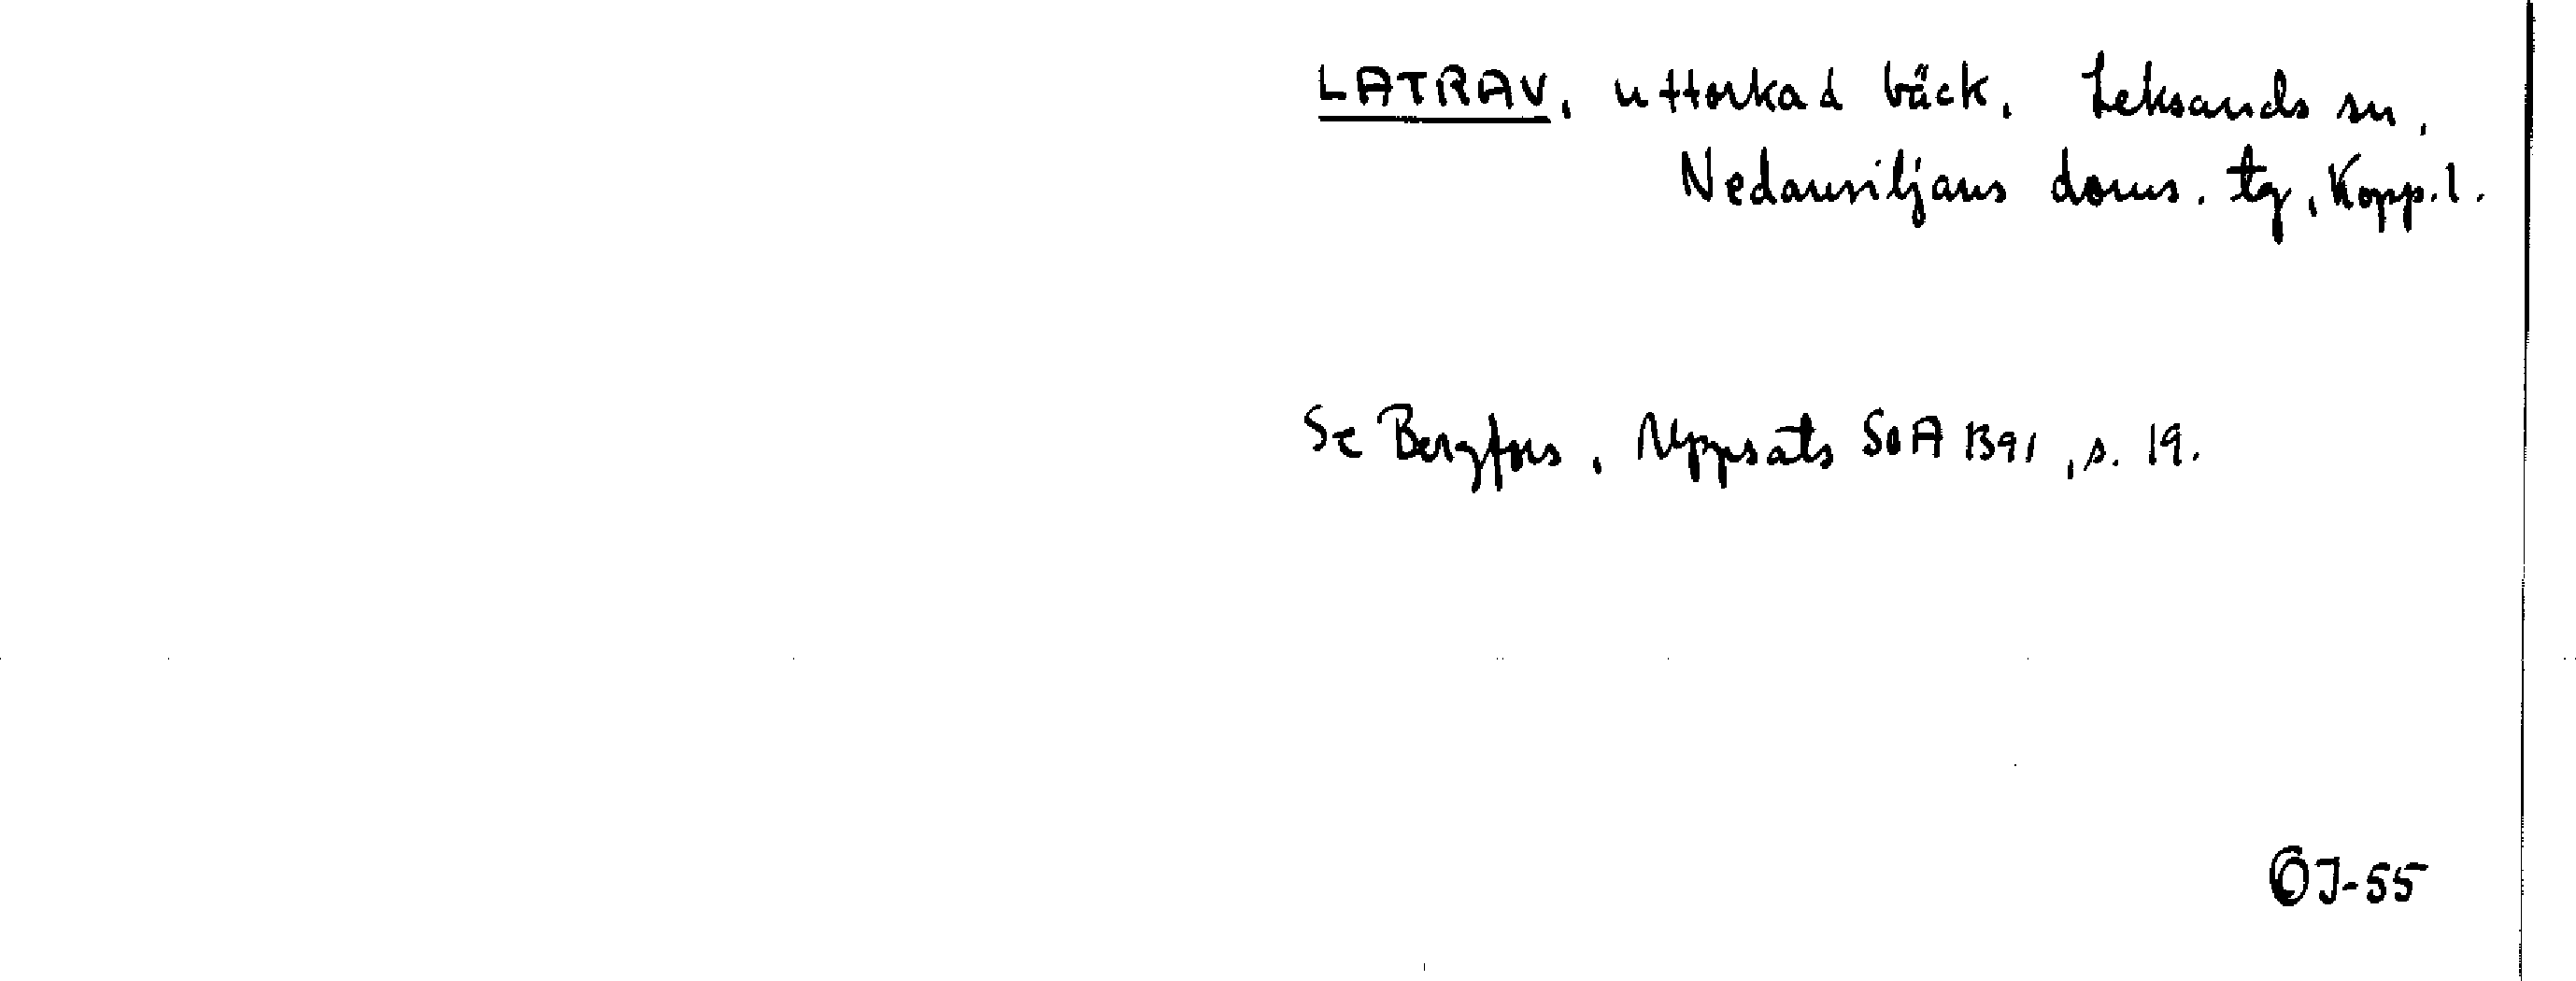 LATRAV, uttorkad bäck. Leksands sn,
Nedansiljans doms. tg, Kopp. l.
Se Bergfors, Uppsats SOA B91, s. 19.
OJ-55